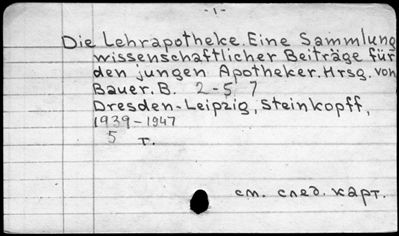 -1-
Die Lehrapotheke. Eine Sammlung
wissenschaftlicher Beiträge für
den jungen Apotheker. Hrsg. von
Bauer. B. 2-5, 7
Dresden-Leipzig, Steinkopff,
1939-1947
5 т.
см. след. карт.